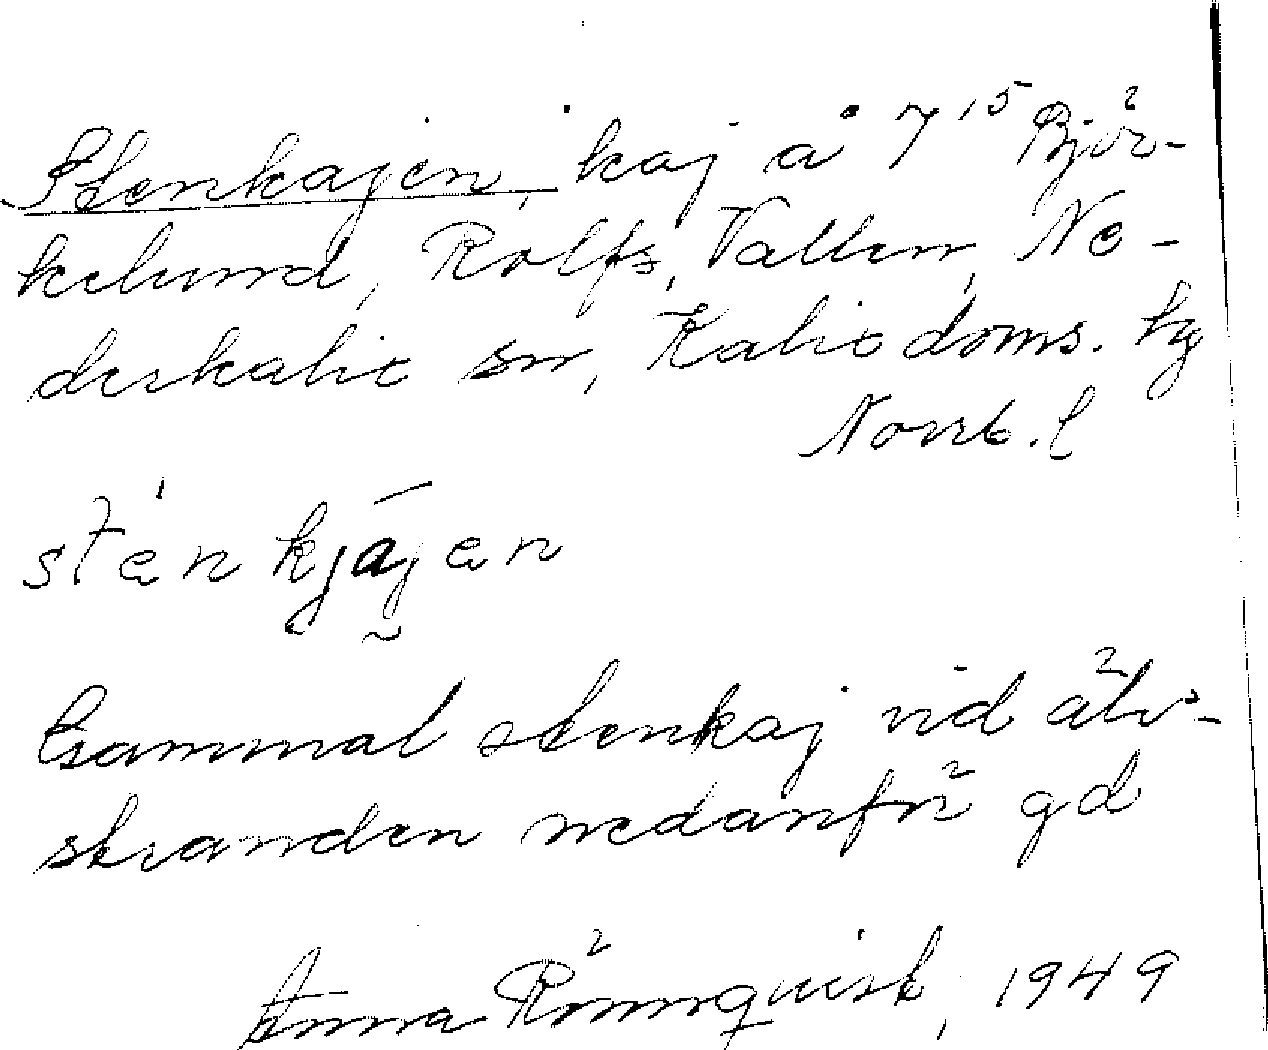 Stenkajen, kaj å 7¹⁵ Björ-
kelund, Rolfs, Vallen, Ne-
derkalix sn, Kalix doms. tg
Norrb. l
sténkjājen
Gammal stenkaj vid älv-
stranden nedanför gd
Anna Rönnquist, 1949